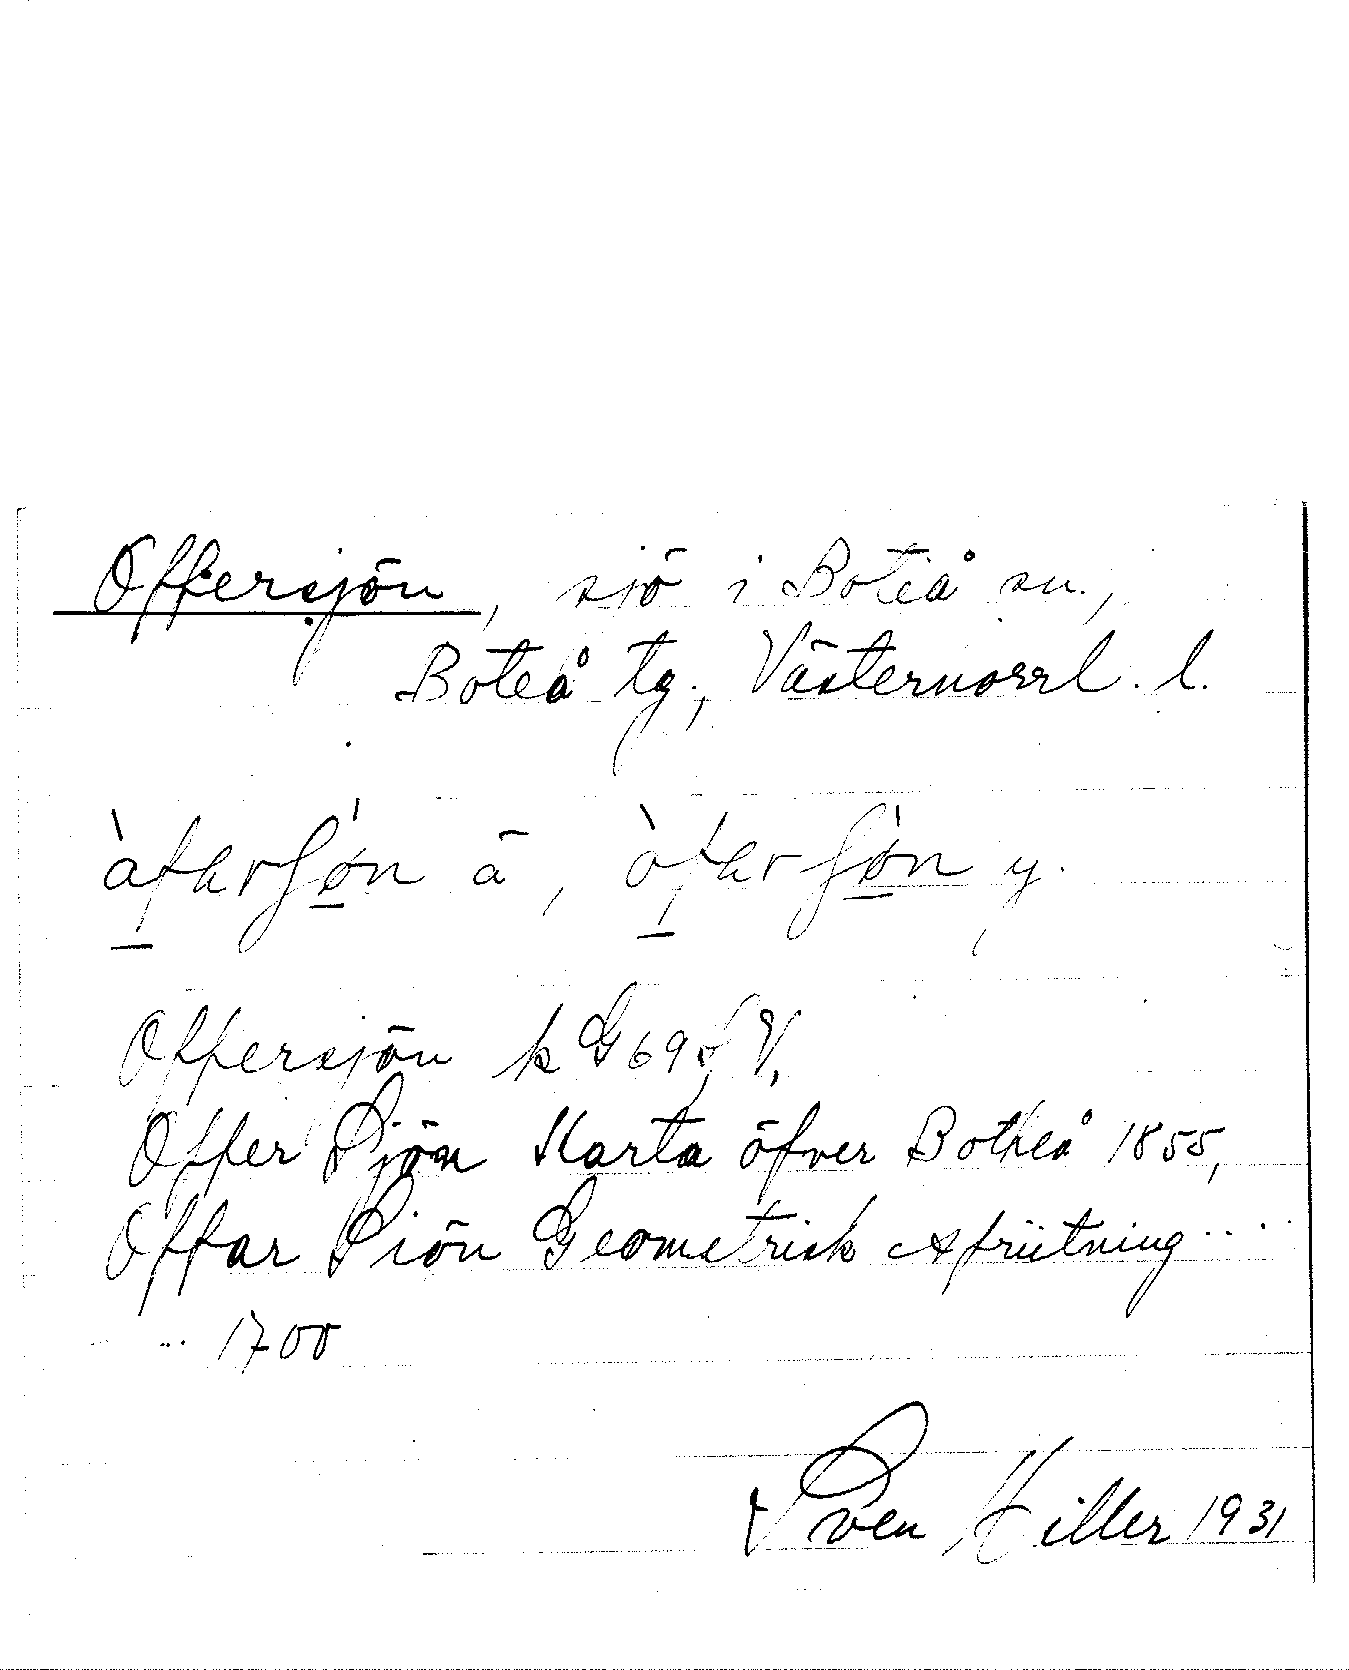 Offersjön, sjö i Boteå sn.,
Boteå tg., Västernorrl. l.
àfarʃø̀n ä, òfarʃø̀n y.
Offersjön k G 69 SV,
Offer Sjön Karta öfver Botheå 1855,
Offar Siön Geometrisk afriitning ...
... 1700
Sven Hiller 1931